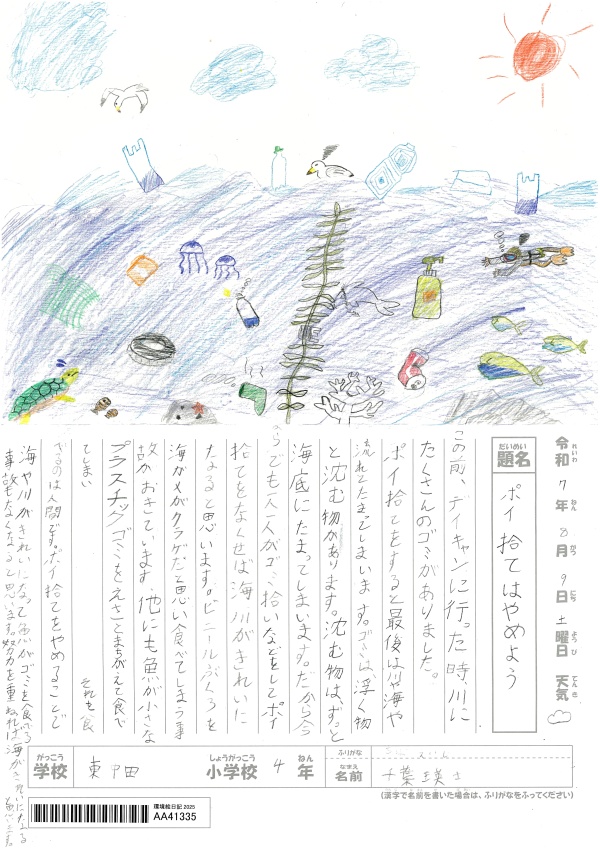 令和7年8月9日土曜日 天気
れいわ ねん がつ にち ようび てんき
だいめい
題名 ポイ捨てはやめよう
この前、デイキャンに行った時、川に
たくさんのゴミがありました。
ポイ捨てをすると最後は川や海や
流れてたまってしまいます。ゴミは浮く物
と沈む物があります。沈む物は、ずっと
海底にたまってしまいます。だから今
からでも一人一人がゴミ拾いなどをしてポイ
捨てをなくせば海、川がきれいに
なると思います。ビニールぶくろを
海がメがクラゲだと思い食べてしまう事
故がおきています。他にも魚が小さな
プラスチックゴミをえさとまちがえて食べ
てしまい それを食
べるのは人間です。ポイ捨てをやめることで
海や川がきれいになって魚がゴミを食べる
事故もなくなると思います。努力を重ねれば海がきれいになる
がっこう
学校 東 小学校 4年
しょうがっこう ねん
ふりがな
なまえ
名前 千葉瑛
(漢字で名前を書いた場合は、ふりがなをふってください)
環境絵日記 2025
AA41335